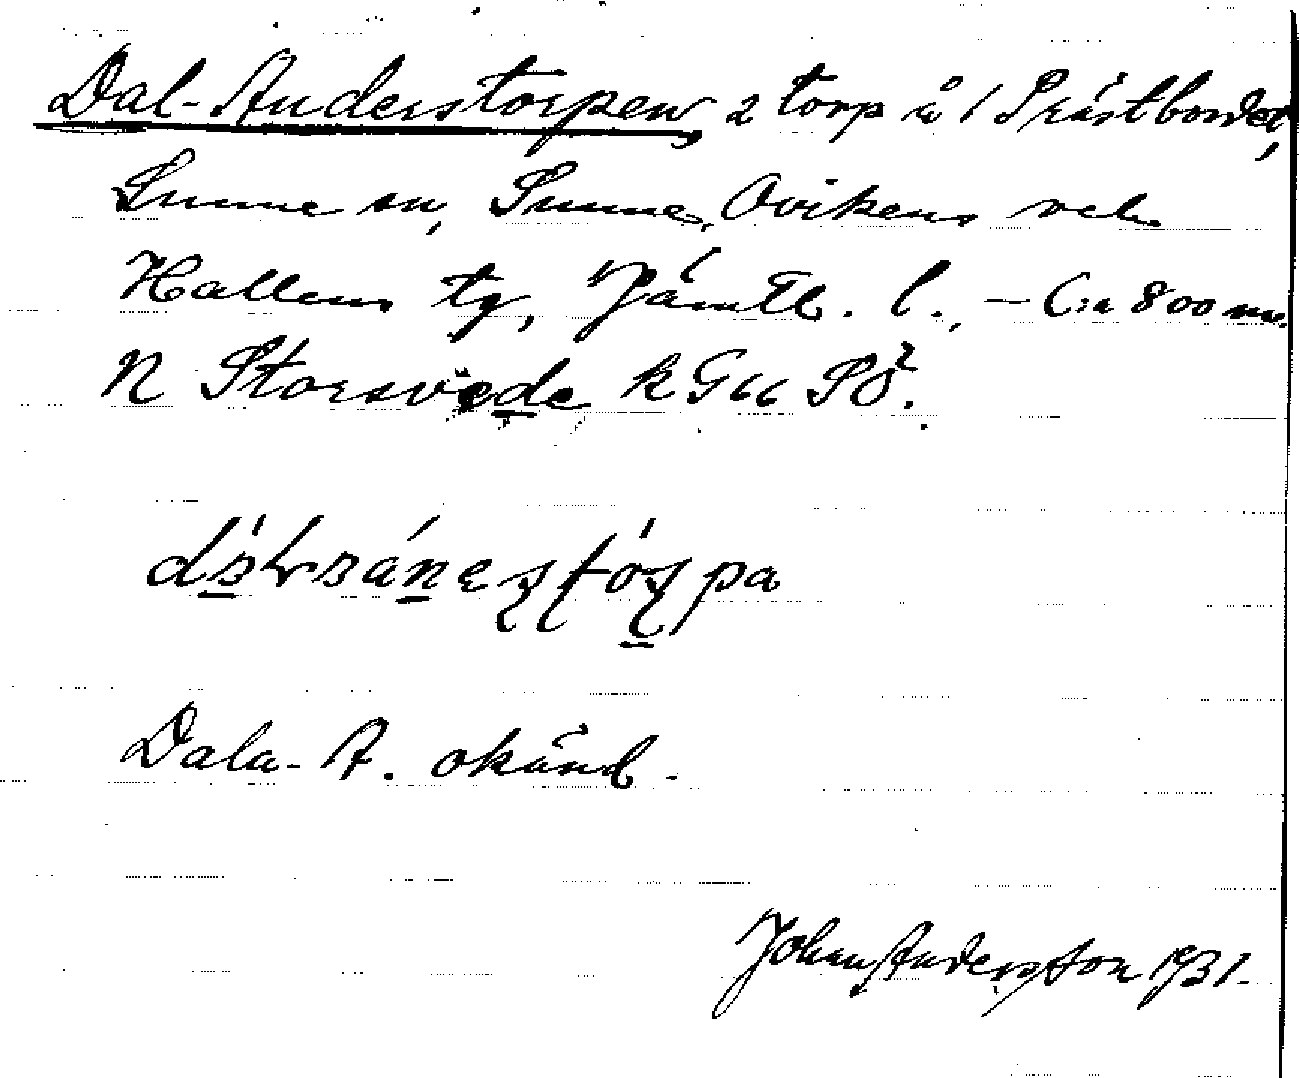 Dal-Anderstorpen, 2 torp å 1 Prästbordet,
Sunne sn, Sunne, Ovikens och
Hallens tg, Jämtl. l., – C:a 800 m.
N Storsvede k G66 SÖ.
Dala-A. okänd.
Johan Andersson 1931.